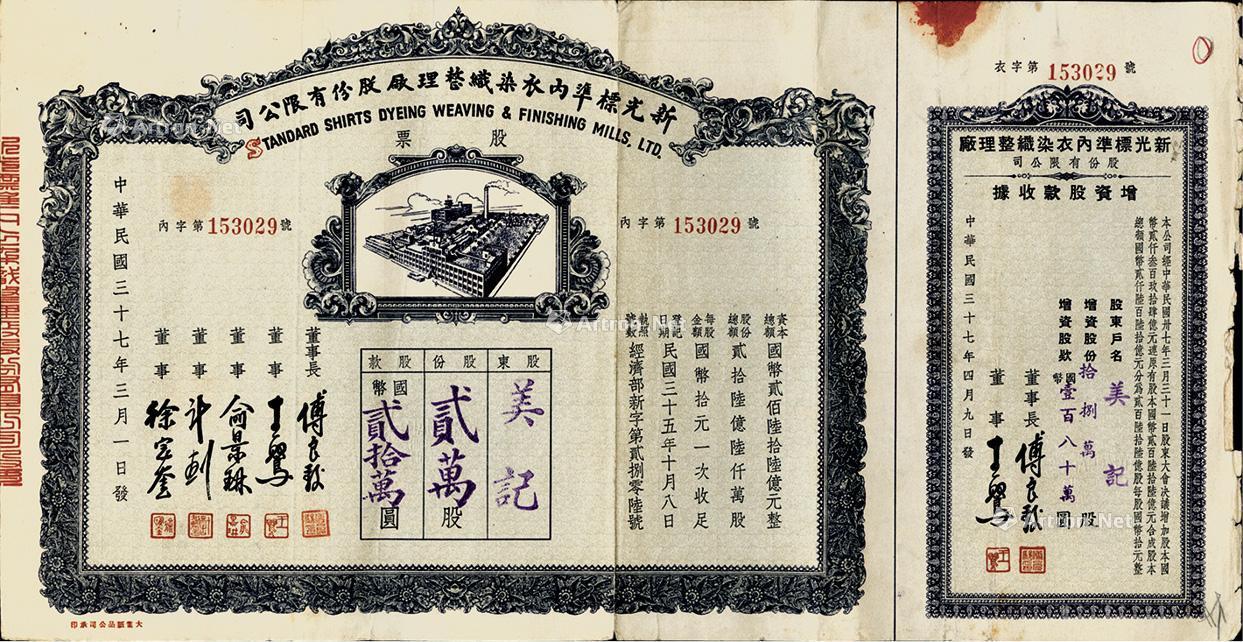 新光標準內衣染織整理廠股份有限公司
STANDARD SHIRTS DYEING WEAVING & FINISHING MILLS, LTD.
股票
內字第153029號
內字第153029號
資本總額 國幣貳佰陸拾陸億元整
股份總額 貳拾陸億陸仟萬股
每股金額 國幣拾元一次收足
登記日期 民國三十五年十月八日
執照號數 經濟部新字第貳捌零陸號
股東 美記
股份 貳萬股
股款 國幣貳拾萬圓
董事長 傅良駿
董事
董事 俞景琳
董事
董事
中華民國三十七年三月一日發
大業印刷公司承印
衣字第153029號
新光標準內衣染織整理廠
股份有限公司
增資股款收據
本公司經中華民國卅七年三月三十一日股東大會決議增加股本國
幣貳仟叁百玖拾肆億元連原有股本國幣貳百陸拾陸億元合成股本
總額國幣貳仟陸百陸拾億元分為貳百陸拾陸億股每股國幣拾元整
股東戶名 美記
增資股份 拾捌萬股
增資股款 國幣壹百八十萬圓
董事長 傅良駿
董事
中華民國三十七年四月九日發
Artron.Net
Artron.Net
Artron.Net